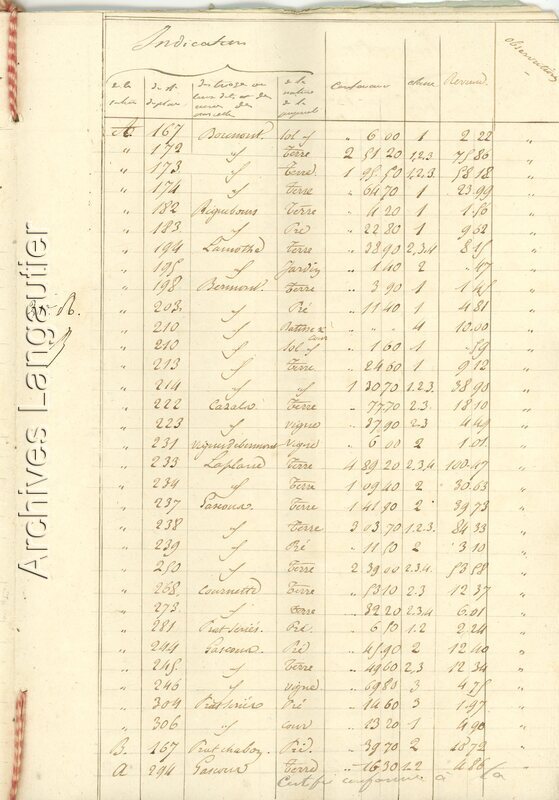 Indication
Observations
de la section
du n° du plan
de la nature de la propriété
Contenance classe Revenu
A. 167 Bermont Sol id 6 00 1 2.22 "
" 172 id Terre 2 51 20 1,2,3 75.86 "
" 173 id Terre 1 95.50 1,2,3 58.18 "
" 174 id Terre " 64.70 1 23.99 "
" 182 Riquebourg Terre " 4 20 1 1.56 "
" 183 id Pré " 22 80 1 9.62 "
" 194 Lamothe Terre " 38.90 2,3,4 8.15 "
" 195 id Jardin " 1.40 2 .47 "
" 198 Bermont Terre " 3.90 1 1.45 "
" 203 id Pré " 11 40 1 4.81 "
" 210 id " " 4 10.00 "
" 210 id Sol id " 1 60 1 .59 "
" 213 id Terre " 24 60 1 9.12 "
" 214 id id 1 30,70 1.2.3. 38.90 "
" 222 Cazals Terre " 77.70 2.3. 18.10 "
" 223 id vigne " 37,90 2.3 4.49 "
" 231 vigne de bermont vigne " 6 00 2 1.01 "
" 233 Laplane Terre 4 89.20 2,3,4 100.47 "
" 234 id Terre 1 09,40 2 30.63 "
" 237 Gascoux Terre 1 41.90 2 39.73 "
" 238 id Terre 3 03,70 1.2.3. 84.33 "
" 239 id Pré " 11.50 2 3.10 "
" 250 id Terre 2 39 00 2.3.4. 53.58 "
" 268 Cournette Terre " 53.10 2.3 12.37 "
" 273 id Terre " 32.20 2.3.4 6.01 "
" 281 Prat Seriés Pré. " 6.50 1.2 2.24 "
" 244 Gascoux Pré " 45.90 2 12.40 "
" 245 id Terre " 49.60 2,3 12.34 "
" 246 id vigne " 69.83 3 4.75 "
" 304 Prat Seriés Pré " 14.60 3 1.97 "
" 306 id cour " 13 20 1 4.90 "
B. 167 Prat chabor Pré. " 39,70 2 10.72 "
A 294 Gascoux Terre " 16.30 1.2 4.86 "
Certifié conforme à la
Archives Langautier